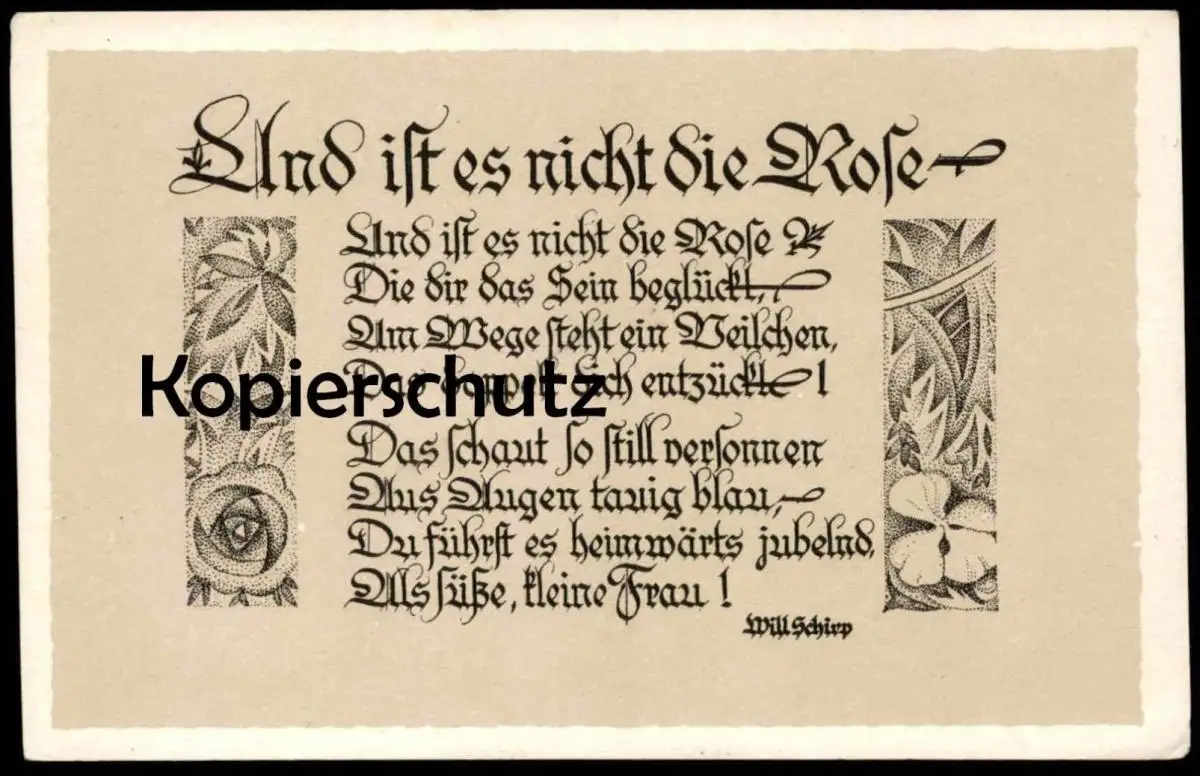 And ist es nicht die Rose
And ist es nicht die Rose
Die dir das Sein beglückt,
Am Wege steht ein Veilchen,
Das doppelt dich entzückt!
Kopierschutz
Das schaut so still versonnen
Aus Augen tauig blau,
Du führst es heimwärts jubelnd,
Als süße, kleine Frau!
Will Schirp